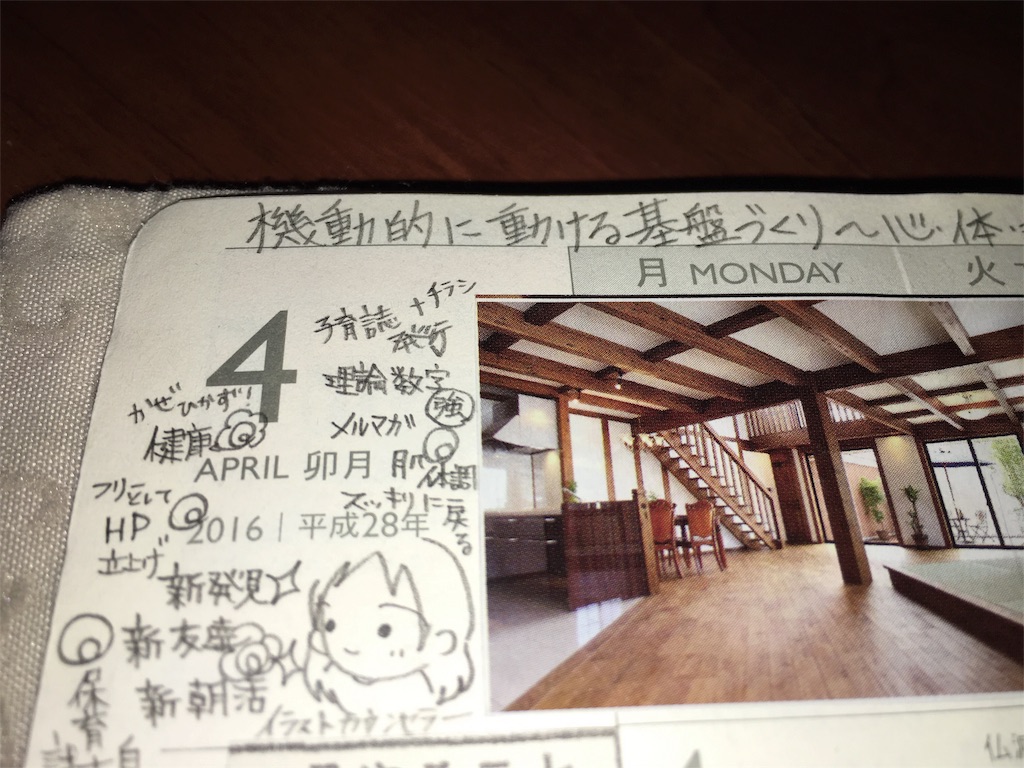 機動的に動ける基盤づくり〜心・体・
月 MONDAY
火
4
子育誌+チラシ
発行
理論数字
強
メルマガ
かぜひかずり
健康
APRIL 卯月
体調
スッキリに戻る
フリーとして
HP
立上げ
2016 | 平成28年
新発見
新友
新朝活
保育
イラストカウンセラー
4